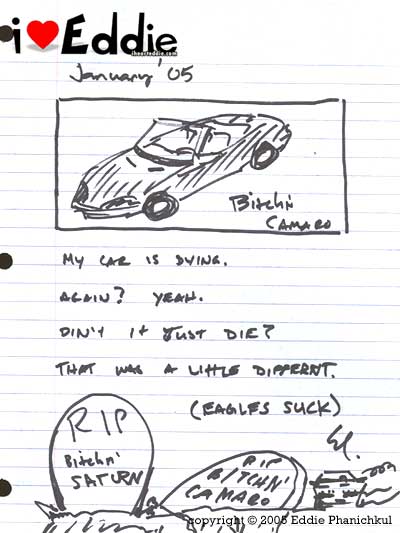 i ❤ Eddie
ihearteddie.com
January '05
Bitchn'
CAMARO
MY CAR IS DYING.
AGAIN? YEAH.
DIN'T IT JUST DIE?
THAT WAS A LITTLE DIFFERNT.
(EAGLES SUCK)
RIP
Bitchn'
SATURN
RIP
BITCHN'
CAMARO
copyright © 2005 Eddie Phanichkul